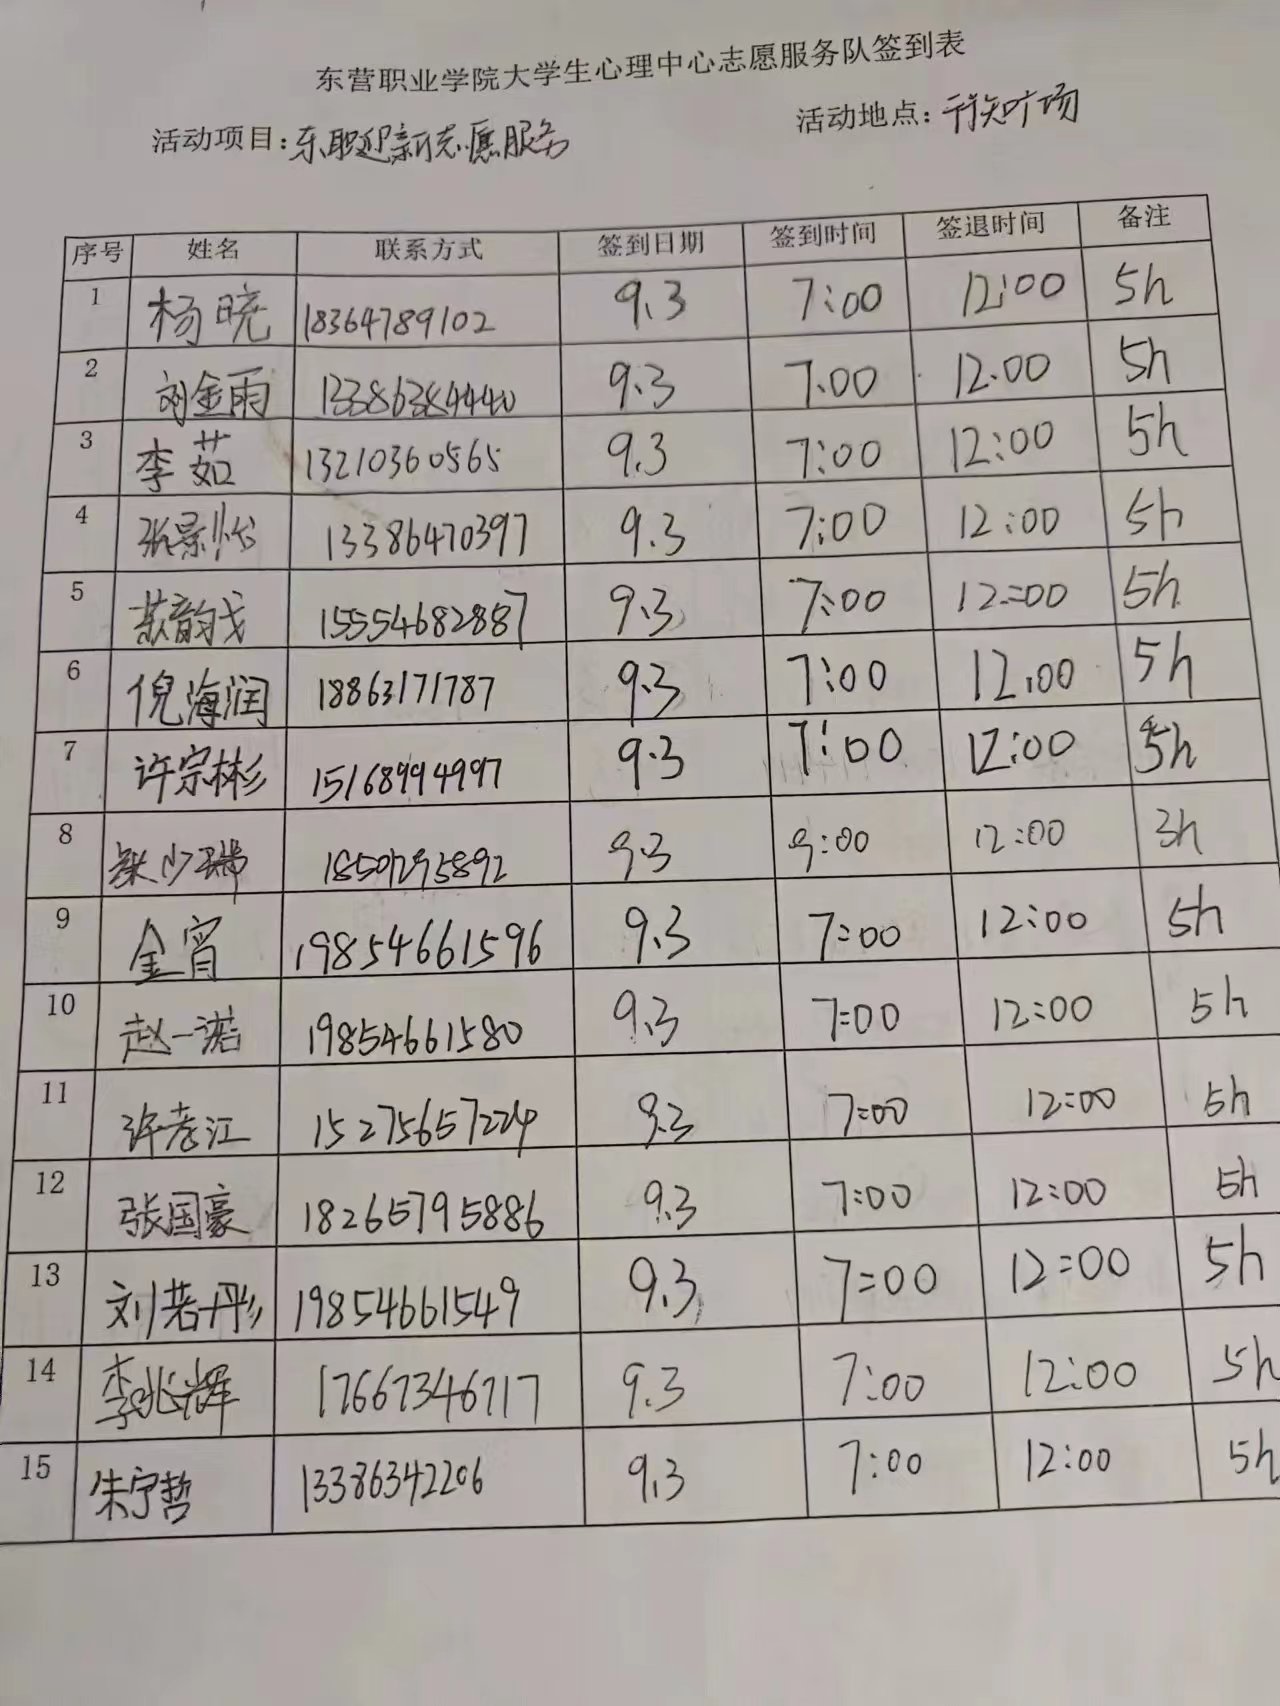 东营职业学院大学生心理中心志愿服务队签到表
活动项目:东职迎新志愿服务 活动地点:行知广场
序号 姓名 联系方式 签到日期 签到时间 签退时间 备注
1 杨晓 18364789102 9.3 7:00 12:00 5h
2 刘金雨 13386384440 9.3 7:00 12:00 5h
3 李茹 13210360565 9.3 7:00 12:00 5h
4 张景怡 13386470397 9.3 7:00 12:00 5h
5 韵戈 15554682887 9.3 7:00 12:00 5h
6 倪海润 18863171787 9.3 7:00 12:00 5h
7 许宗彬 15168994997 9.3 7:00 12:00 5h
8 少瑞 9.3 9:00 12:00 3h
9 金宵 19854661596 9.3 7:00 12:00 5h
10 赵一诺 19854661580 9.3 7:00 12:00 5h
11 许孝江 15275657224 9.3 7:00 12:00 5h
12 张国豪 18265795886 9.3 7:00 12:00 5h
13 刘若彤 19854661549 9.3 7:00 12:00 5h
14 李兆辉 17667346717 9.3 7:00 12:00 5h
15 朱宁哲 13386342206 9.3 7:00 12:00 5h